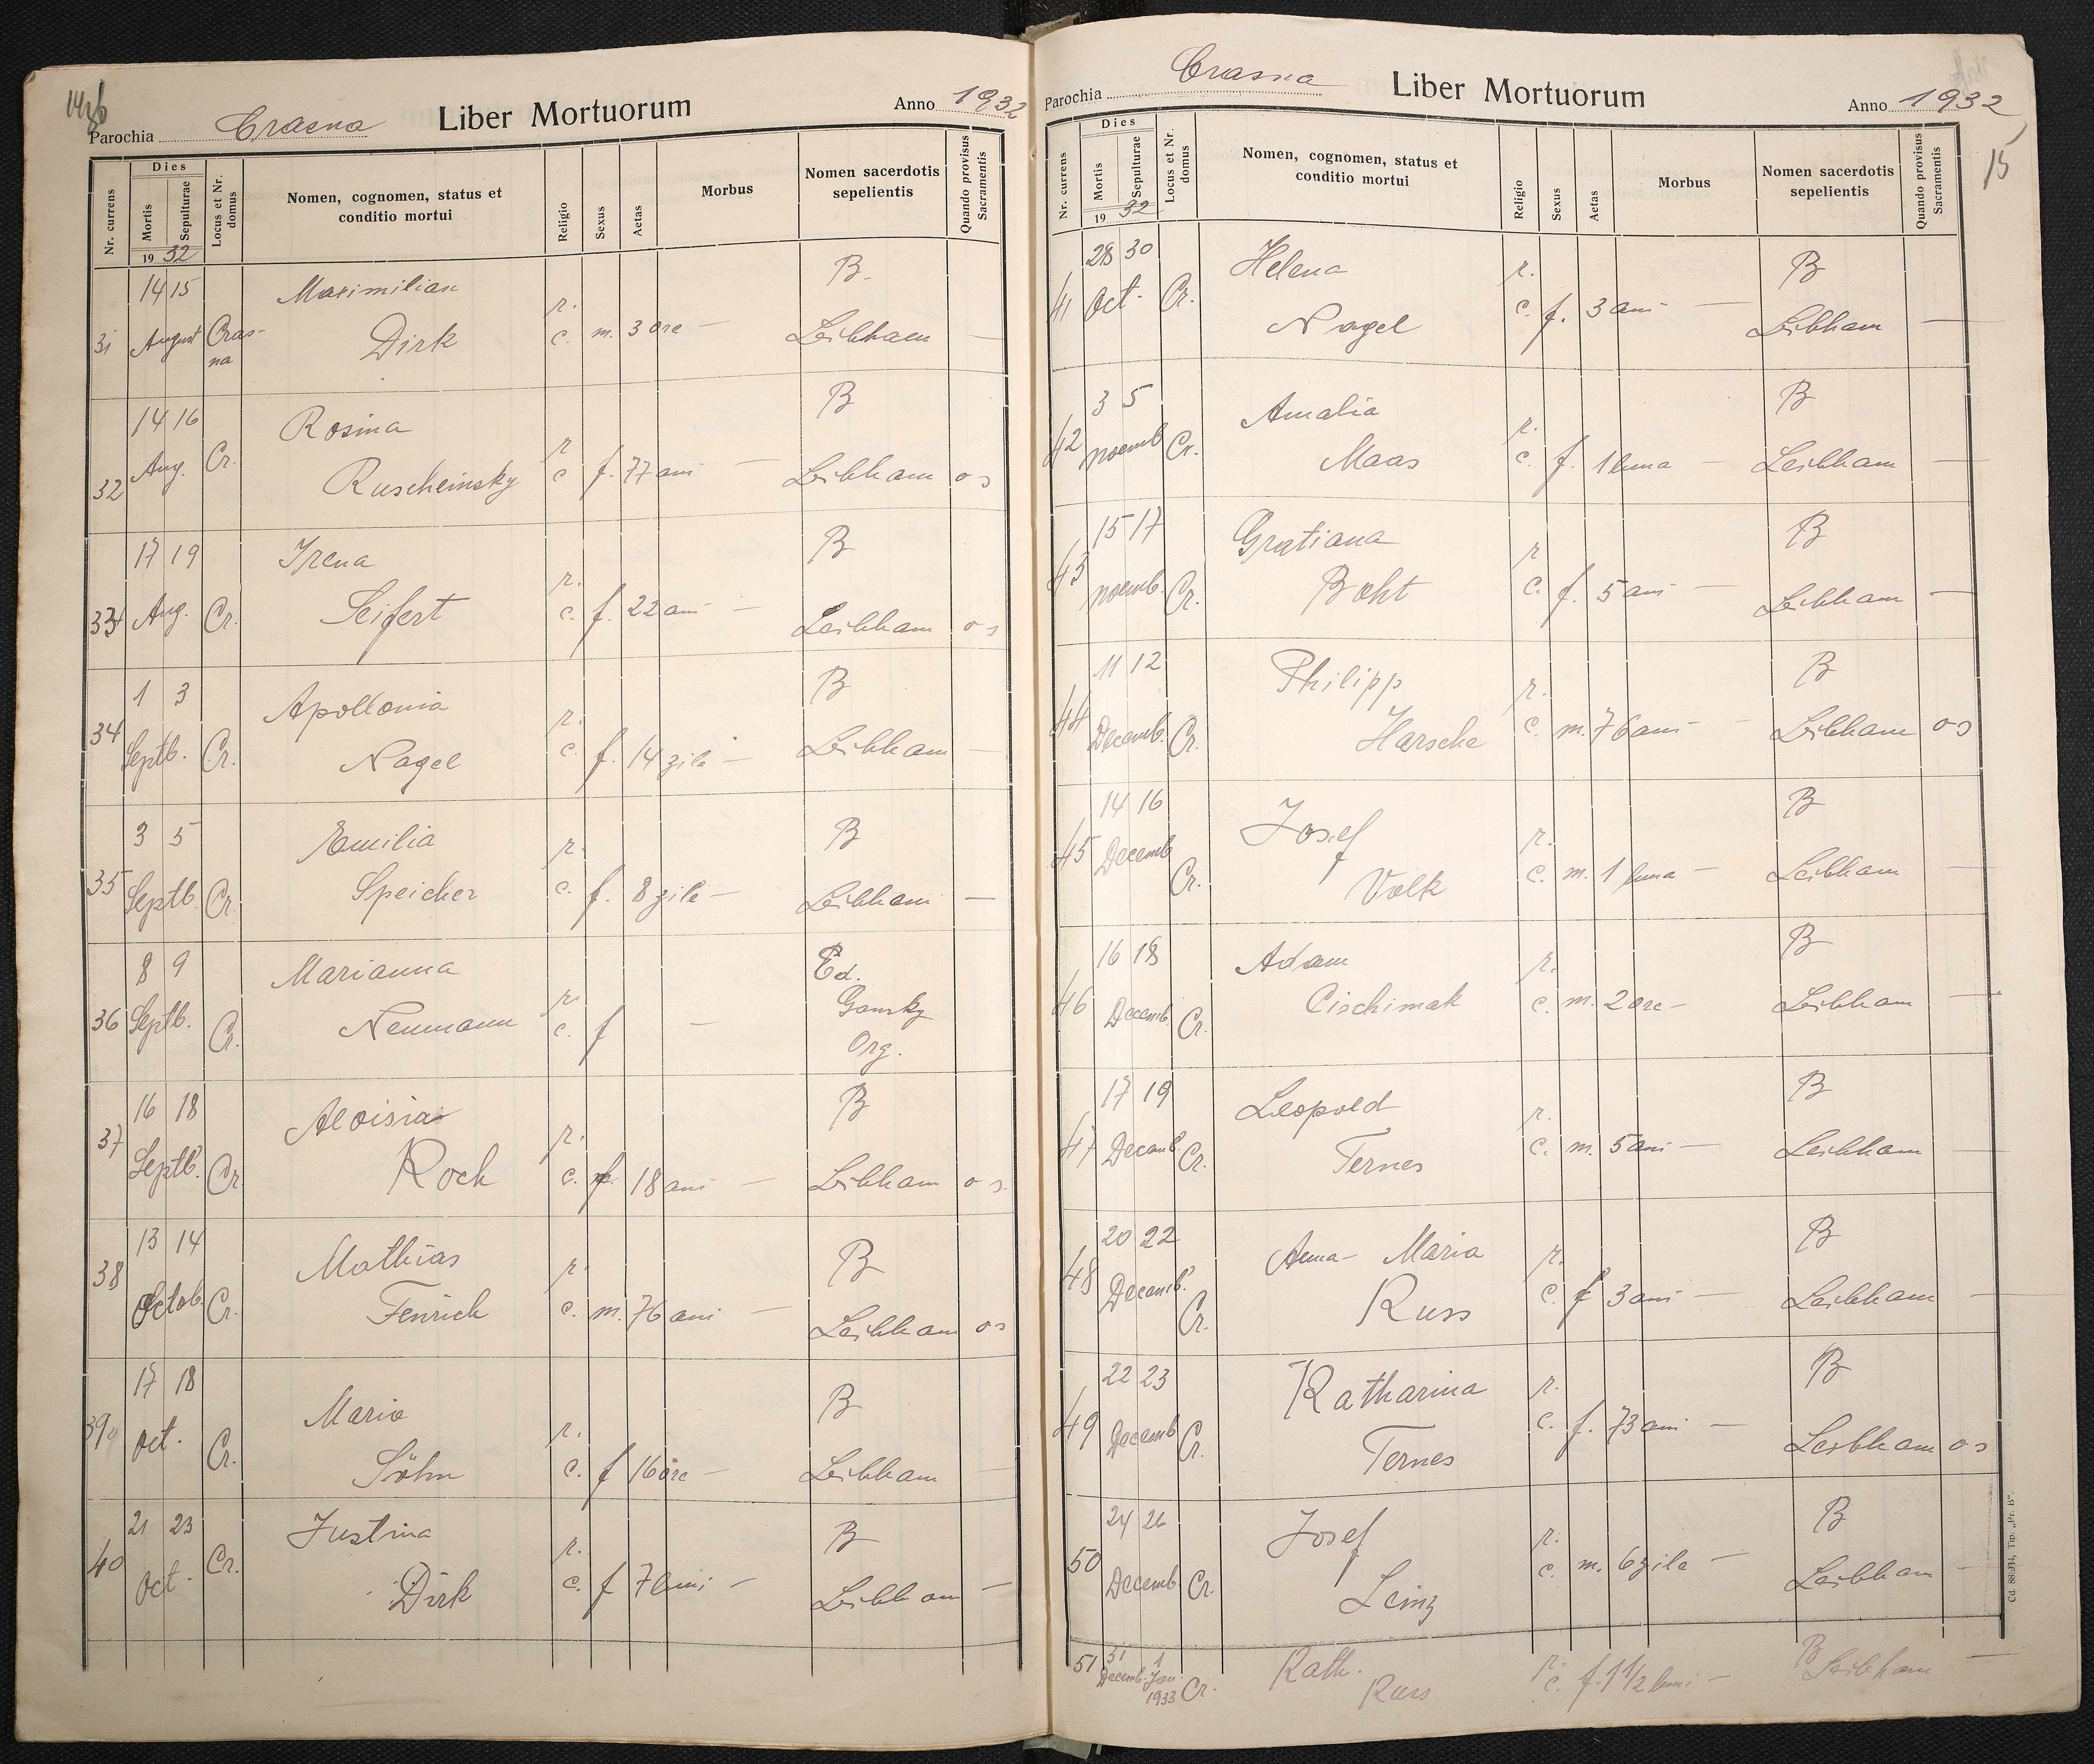 Parochia Crasna Liber Mortuorum Anno 1932
Nr. currens
Dies
Mortis
Sepulturae
19 32
Locus et Nr. domus
Nomen, cognomen, status et conditio mortui
Religio
Sexus
Aetas
Morbus
Nomen sacerdotis sepelientis
Quando provisus Sacramentis
14 15 Maximilian B
31 August Crasna Dirk r. c. m. 3 ore — Leibham —
14 16 Rosina B
32 Aug. Cr. Ruscheinsky r c f. 77 ani — Leibham os
17 19 Irena B
33 Aug. Cr. Seifert r. c. f. 22 ani — Leibham os
1 3 Apollonia B
34 Septb. Cr. Nagel r. c. f. 14 zile — Leibham —
3 5 Emilia B
35 Septb. Cr. Speicher r. c. f. 8 zile — Leibham —
8 9 Marianna Ed.
36 Septb. Cr. Neumann r. c. f — Gansky
Org.
16 18 Aloisia B
37 Septb. Cr Koch r. c. f. 18 ani — Leibham os
13 14 Mathias B
38 Octob. Cr. Fenrich r. c. m. 76 ani — Leibham os
17 18 Maria B
39 Oct. Cr. Söhn r. c. f 16 ore — Leibham —
21 23 Justina B
40 Oct. Cr. Dirk r. c. f 7 luni — Leibham —
Parochia Crasna Liber Mortuorum Anno 1932
15
Nr. currens
Dies
Mortis
Sepulturae
19 32
Locus et Nr. domus
Nomen, cognomen, status et conditio mortui
Religio
Sexus
Aetas
Morbus
Nomen sacerdotis sepelientis
Quando provisus Sacramentis
28 30 Helena B
41 Oct. Cr. Nagel r. c. f. 3 ani — Leibham —
3 5 Amalia B
42 Noemb Cr. Maas r. c. f. 1 luna — Leibham —
15 17 Gratiana B
43 Noemb. Cr. Boht r c. f. 5 ani — Leibham —
11 12 Philipp B
44 Decemb. Cr. Harsche r. c. m. 76 ani — Leibham os
14 16 Josef B
45 Decemb Cr. Volk r. c. m. 1 luna — Leibham —
16 18 Adam B
46 Decemb Cr. Cischimak r. c. m. 2 ore — Leibham —
17 19 Leopold B
47 Decemb. Cr. Ternes r. c. m. 5 ani — Leibham —
20 22 Anna-Maria B
48 Decemb. Cr. Russ r. c. f 3 ani — Leibham —
22 23 Katharina B
49 Decemb Cr. Ternes r. c. f. 73 ani — Leibham os
24 26 Josef B
50 Decemb. Cr. Leinz r. c. m. 6 zile — Leibham —
51 31 Decemb. 1 Jan. 1933 Cr. Kath. Russ r. c. f. 1 1/2 luni — B Leibham —
Cd. 88934, Tip. „Pr. B".